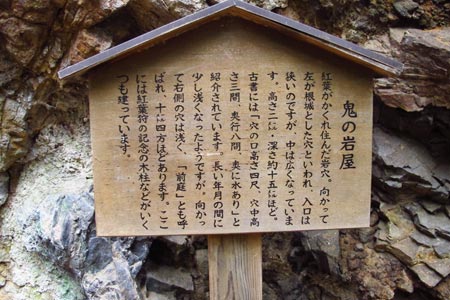 鬼の岩屋
紅葉がかくれ住んだ岩穴。向かって
左が根城とした穴といわれ、入口は
狭いのですが、中は広くなっていま
す。高さ二㍍、深さ約十五㍍ほど。
古書には「穴の口高さ四尺、穴中高
さ三間、奥行八間、奥に水あり」と
紹介されています。長い年月の間に
少し浅くなったようですが、向かっ
て右側の穴は浅く、「前庭」とも呼
ばれ、十㍍四方ほどあります。ここ
には紅葉狩の記念の木柱などがいく
つも建っています。